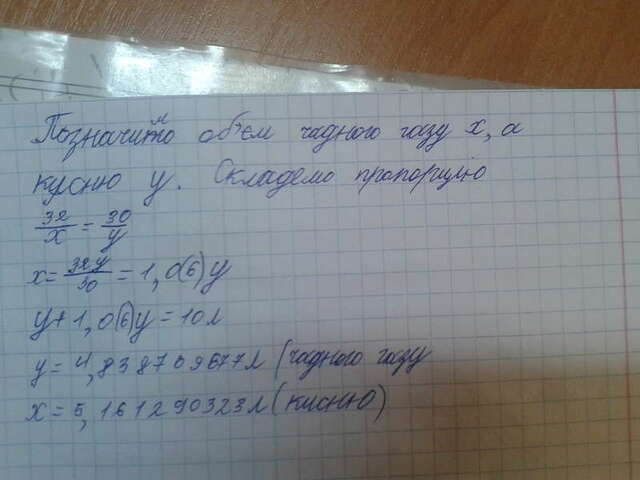 Позначимо об'єм чадного газу x, а
кисню y. Складемо пропорцію
32/x = 30/y
x = 32y/30 = 1,0(6)y
y + 1,0(6)y = 10л
y = 4,838709677л (чадного газу
x = 5,161290323л (кисню)